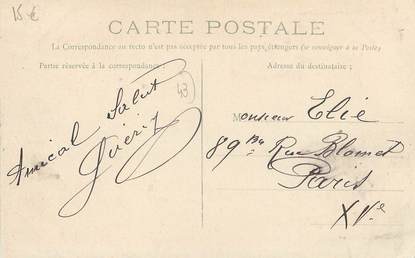 15 €
CARTE POSTALE
La Correspondance au recto n'est pas acceptée par tous les pays étrangers (se renseigner à la Poste)
Partie réservée à la correspondance;
Adresse du destinataire;
43
Amical Salut
Guérin
Monsieur Elie
89 Bis Rue Blomet
Paris
XVe